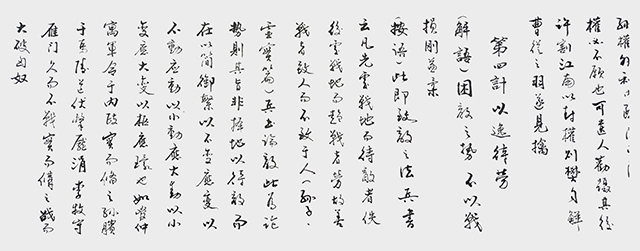 孙權外和
權必不願也可遣人勸躡其後
許割江南以封權則樊自解
曹從之羽遂見擒
第四計以逸待勞
(解語)困敵之勢不以戰
損剛益柔
(按語)此即致敵之法兵書
云凡先處戰地而待敵者佚
後處戰地而趨戰者勞故善
戰者致人而不致于人(孙子·
虛實篇)兵書論敵此為論
勢則其旨非擇地以待敵而
在以简御繁以不變應變以
不動應動以小動應大動以小
變應大變以樞應環也如管仲
寓軍令于內政實而備之孙臏
于馬陵道伏擊龐涓李牧守
雁门久而不戰實而備之戰而
大破匈奴